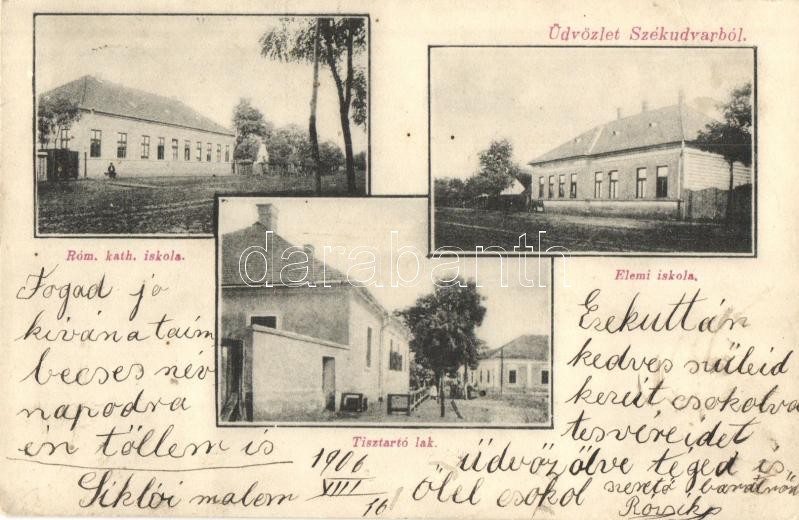 Üdvözlet Székudvarból.
Róm. kath. iskola.
Elemi iskola.
Tisztartó lak.
darabanth.com
Fogad jo
kivánataim
becses név
napodra
én töllem is
Siklói malem
1906
VIII
16
Ezekuttán
kedves szüleid
kezüt csokolva
tesvéreidet
üdvözölve téged is
ölel csokol szerető barátnőd